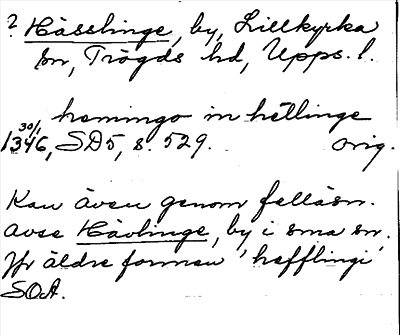 ? Hässlinge, by, Lillkyrka
sn, Trögds hd, Upps. l.
hemingo in hetlinge
30/1
1346, SD5, s. 529. orig.
Kan även genom felläsn.
avse Hävlinge, by i sma sn,
Jfr äldre formen 'hefflingi'
SOA.